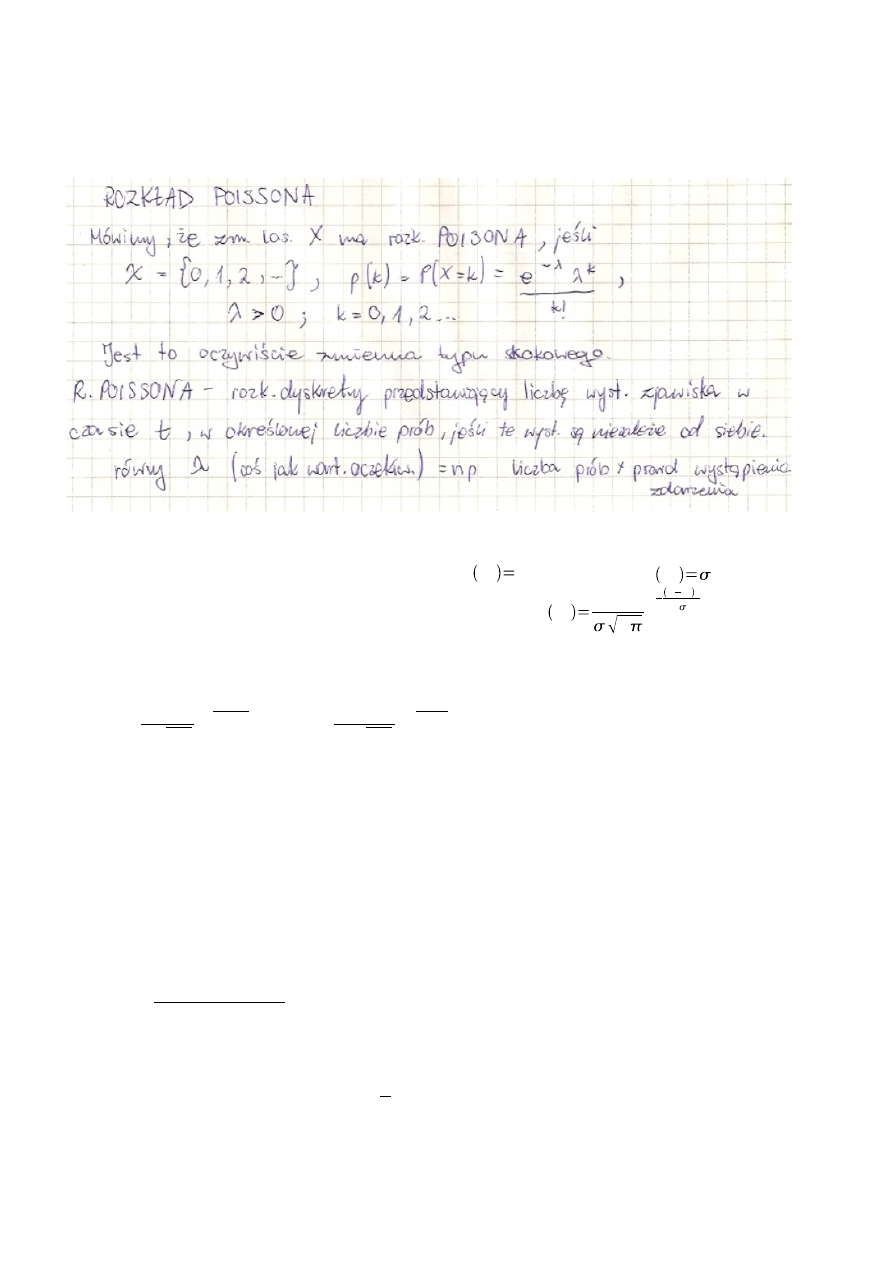 ROZKŁAD POISSONA
Mówimy, że zm. los. X ma rozk. POISONA, jeśli
X = {0, 1, 2, ...}, p(k) = P(X=k) = e^{-λ} λ^k / k! ,
λ > 0 ; k = 0, 1, 2 ...
Jest to oczywiście zmienna typu skokowego.
R. POISSONA - rozk. dyskretny przedstawiający liczbę wyst. zjawiska w
czasie t, w określonej liczbie prób, jeśli te wyst. są niezależe od siebie.
równy λ (coś jak wart. oczekiw.) = np liczba prób * prawd wystąpienia
zdarzenia
( )= ( )=σ
( )= σ√ π -( - ) σ